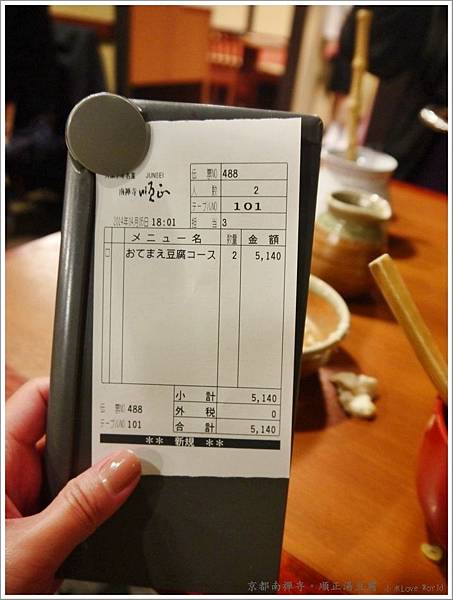 JUNSEI
南禅寺 順正
伝 票NO 488
人 数 2
テーブルNO 101
2014年04月05日 18:01 担 当 3
メニュー名 数量 金 額
おてまえ豆腐コース 2 5,140
小 計 5,140
伝 票NO 488 外 税 0
テーブルNO 101 合 計 5,140
** 新規 **
京都南禪寺。順正湯豆腐 小米Love World